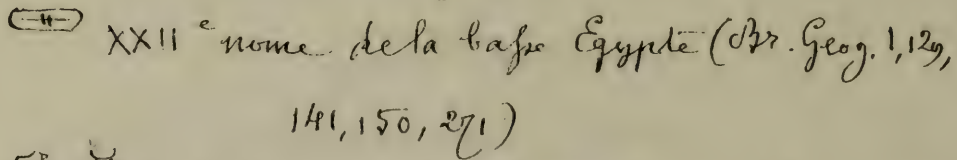 XXII e nome de la basse Egypte (Br. Geog. 1, 129,
141, 150, 271)